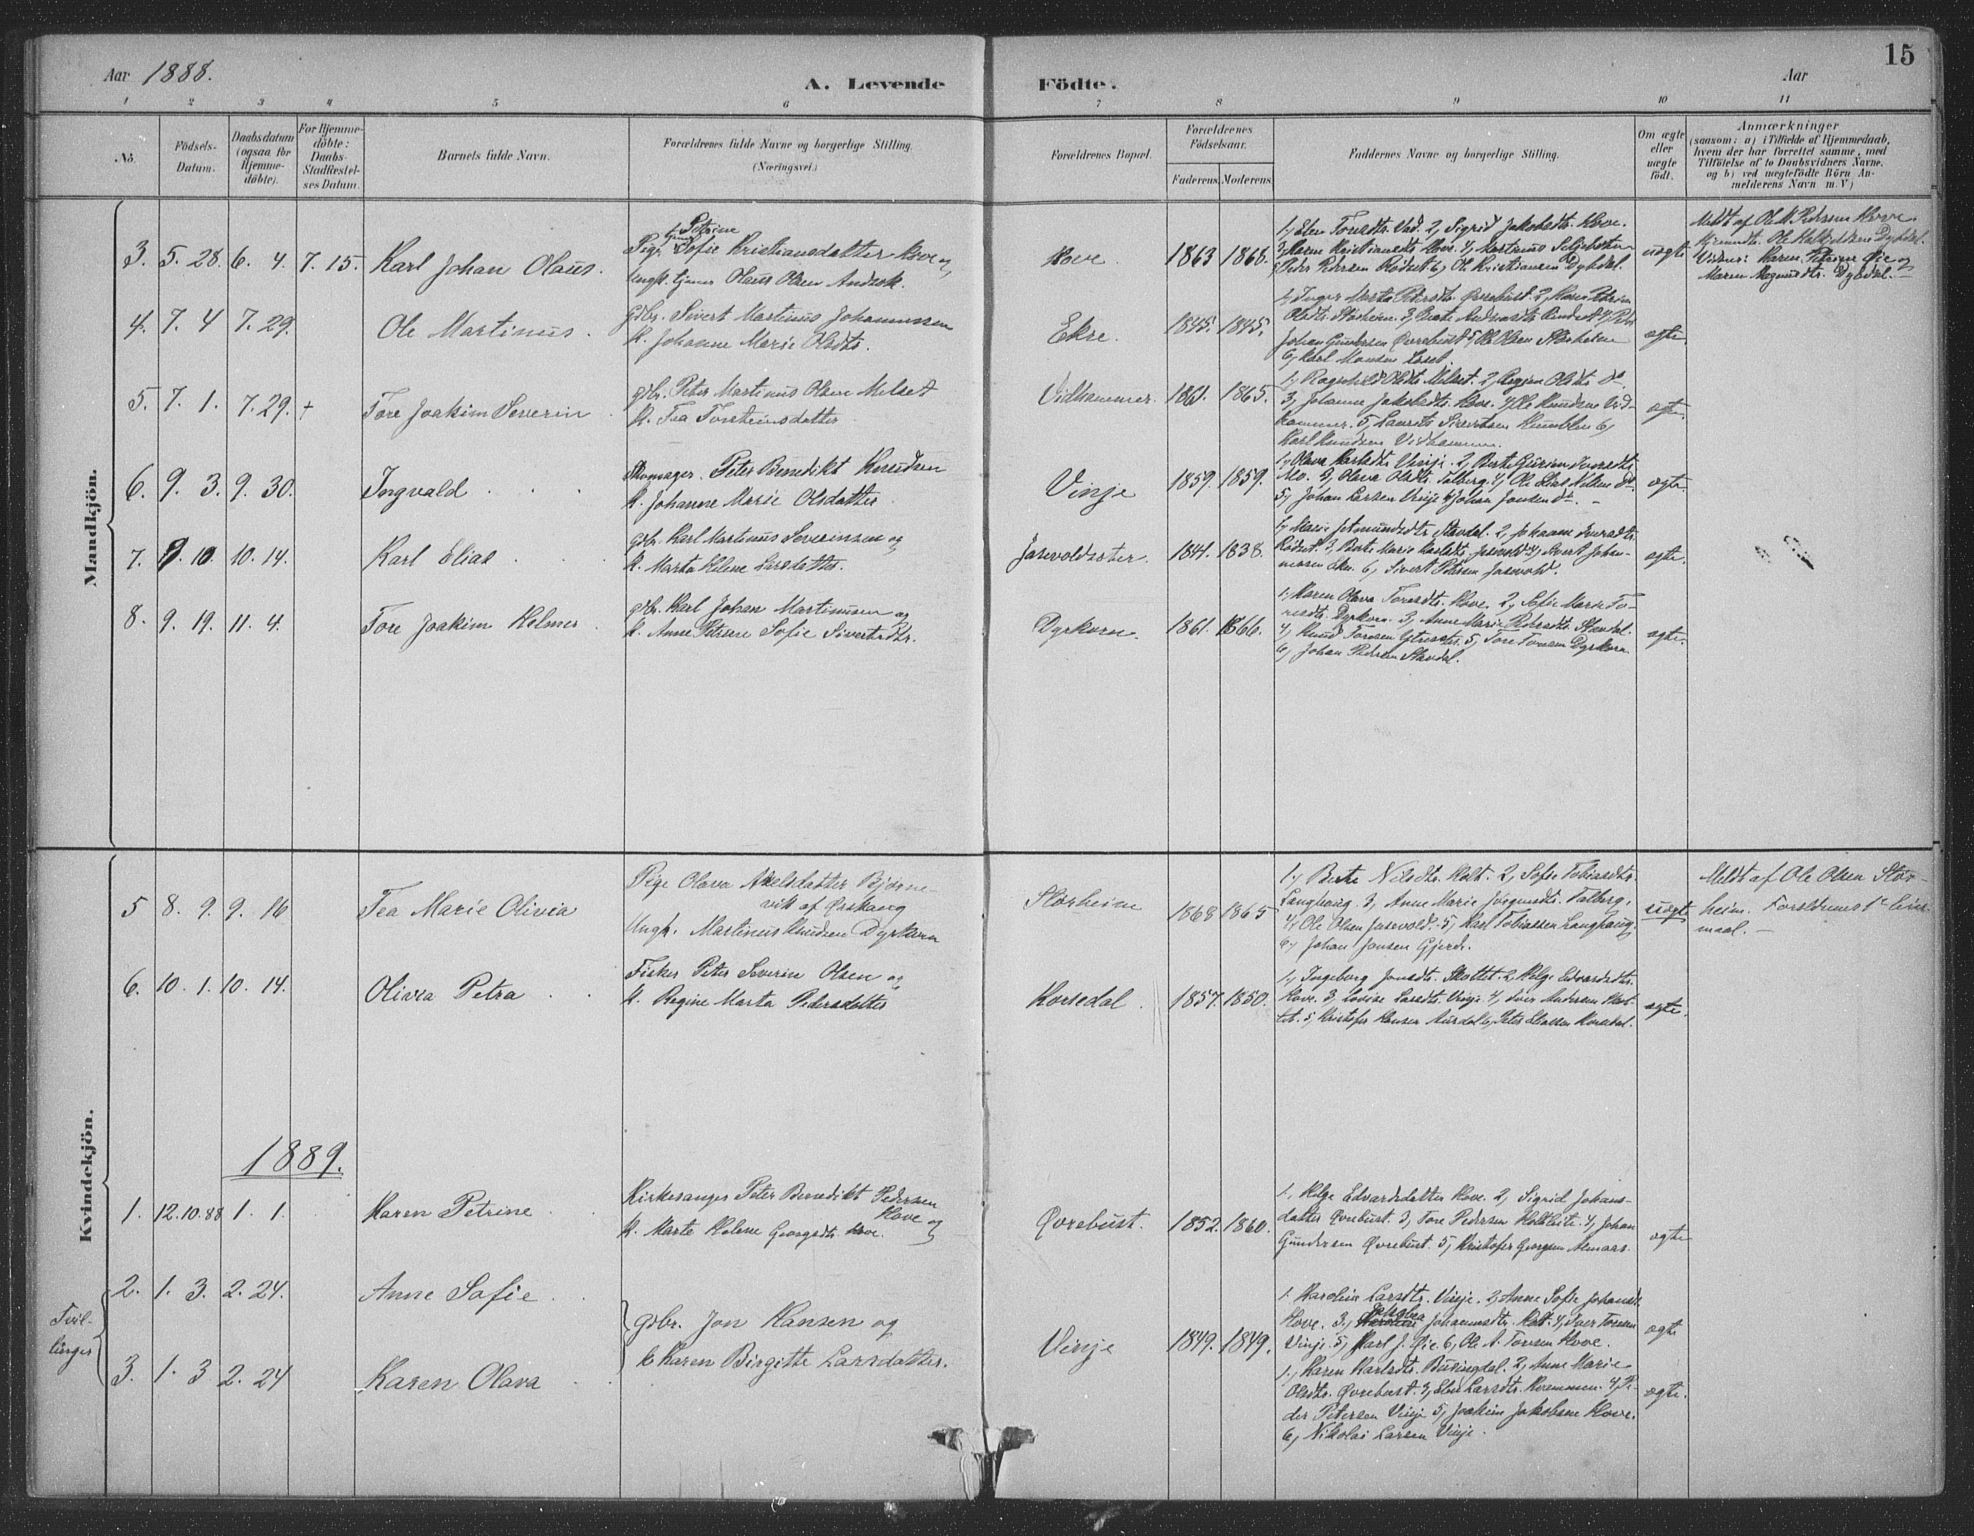 Aar 1888. A. Levende Födte. Aar 15
1 2 3 4 5 6 7 8 9 10 11
No. Födsels-Datum. Daabsdatum (ogsaa for Hjemme-döbte). For Hjemme-döbte: Daabs-Stadfæstel-ses Datum. Barnets fulde Navn. Forældrenes fulde Navne og borgerlige Stilling. (Næringsvei.) Forældrenes Bopæl. Forældrenes Födselsaar. Faderens. Moderens. Faddernes Navne og borgerlige Stilling. Om ægte eller uægte födt. Anmærkninger (saasom: a) i Tilfælde af Hjemmedaab, hvem der har forrettet samme, med Tilföielse af to Daabsvidners Navne, og b) ved uægtefödte Börn An-melderens Navn m. V.)
Mandkjön.
3. 5. 28. 6. 4. 7. 15. Karl Johan Olaus.
Petrine
Pige Sofie Kristiansdatter Hove og
Ungk. Olaus Olsen
Hove. 1863 1866. uægte
1, Elen Toresdtr. 2, Sigrid Jakobsdtr. Hove.
3, Karen Kristiansdtr. Hove. 4, Martinus
5, Peder Pedersen Rödset 6, Ole Kristiansen Dybdal.
Meldt af Ole Pedersen Hove.
Dybdal.
Vidner: Karen Petrine Øie og
Maren Magnusdtr. Dybdal.
4. 7. 4 7. 29. Ole Martinus.
Gdbr. Sivert Martinus Johannessen
K. Johanne Marie Olsdtr.
Ekre. 1845. 1845. ægte.
1, Inger Marta Petersdtr. Øvrebust. 2, Karen Petrine
Olsdtr. Storheim. 3,
Johan Gundersen Øvrebust 5, Ole Olsen Storheim
6, Karl Monsen
5. 7. 1. 7. 29. + Tore Joakim Severin
gdbr. Peter Martinus Olsen Melset
K. Tea Torsteinsdatter
Vidhammer. 1861. 1865. ægte.
1, Ragnhild Olsdtr. Melset. 2, Regine Olsdtr. do
3, Johanne Jakobsdtr. Hove. 4, Ole Knudsen Vid-
hammer. 5, Laurits Sivertsen Humblen 6,
Karl Knudsen Vidhammer.
6. 9. 3. 9. 30. Ingvald
Skomager. Peter Benedikt Knudsen
K. Johanne Marie Olsdatter
Vinje 1859. 1859. ægte.
1, Olava Karlsdtr. Vinje. 2, Berte Iversdtr.
Mo. 3, Olava Olsdtr. 4, Ole Elias Nilsen do.
5, Johan Larsen Vinje 6, Johan Jonsen do.
7. 9. 10. 10. 14. Karl Elias
gdbr. Karl Martinus Severinsen og
K. Marta Helene Larsdatter.
Jasevoldsæter. 1841. 1838. ægte.
1, Marie Stavdal. 2, Johanne Iversdtr.
Rödset. 3, Berte Marie Karlsdtr. Jasevold 4, Sivert Johan-
nessen Ekre. 6, Sivert Petersen Jasevold.
8. 9. 19. 11. 4. Tore Joakim Helmer
gdbr. Karl Johan Martinusen og
K. Anne Petrine Sofie Sivertsdtr.
Dyrkorn. 1861. 1866. ægte.
1, Karen Olava Toresdtr. Hove. 2, Sofie Marie To-
resdtr. Dyrkorn. 3, Anne Marie Stavdal.
4, Knud Toresen 5, Tore Toresen Dyrkorn
6, Johan Pedersen Stavdal.
Kvindekjön.
5 8. 9. 9. 16 Tea Marie Olivia
Pige Olava Axelsdatter Bjørne-
vik af Ørskaug
Ungk. Martinus Knudsen Dyrkorn
Storheim 1868 1865 uægte
1, Berte Nilsdtr. Holt. 2, Sofie Tobiasdtr.
Langhaug. 3, Anne Marie Jörgensdtr. Talberg.
4, Ole Olsen Jasevold. 5, Karl Tobiassen Langhaug.
6, Johan Jonsen Gjerde.
Meldt af Ole Olsen Stor-
heim.
maal.
6. 10. 1. 10. 14. Olivia Petra
Fisker Peter Severin Olsen og
K. Regine Marta Pedersdatter
Korsedal. 1857. 1850. ægte.
1, Ingeborg Jonsdtr. Skottet. 2, Helge Edvardsdtr.
Hove. 3, Lovise Larsdtr. Vinje 4, Iver Andersen Skot-
tet. 5, Kristofer Hansen Aursdal 6, Peter Eliassen Korsedal.
1889.
1. 12. 10. 88 1. 1. Karen Petrine
Kirkesanger Peter Benedikt Pedersen
Hove og
K. Marte Helene Georgsdtr. Hove.
Øvrebust. 1852. 1860. ægte
1, Helge Edvardsdatter Hove. 2, Sigrid Johans-
datter Øvrebust. 3, Tore Pedersen Holtleite. 4, Johan
Gundersen Øvrebust. 5, Kristofer Georgsen Alnaas.
Tvil-
linger
2. 1. 3. 2. 24. Anne Sofie
gdbr. Jon Hansen og
K. Karen Birgitte Larsdatter.
Vinje 1849. 1849. ægte
1, Karoline Larsdtr. Vinje. 2, Anne Sofie Johansdtr.
Hove. 3, Jakobea Johannesdtr. Holt. 4, Iver Tonsen
Vinje. 5, Karl J. Øie. 6, Ole A. Tonsen Hove.
3. 1. 3 2. 24 Karen Olava ægte.
1, Karen Karlsdtr. Busingdal. 2, Anne Marie
Olsdtr. Øvrebust. 3, Elen Larsdtr. 4, Pe-
der Petersen Vinje 5, Joakim Jakobsen Hove.
6, Nikolai Larsen Vinje.